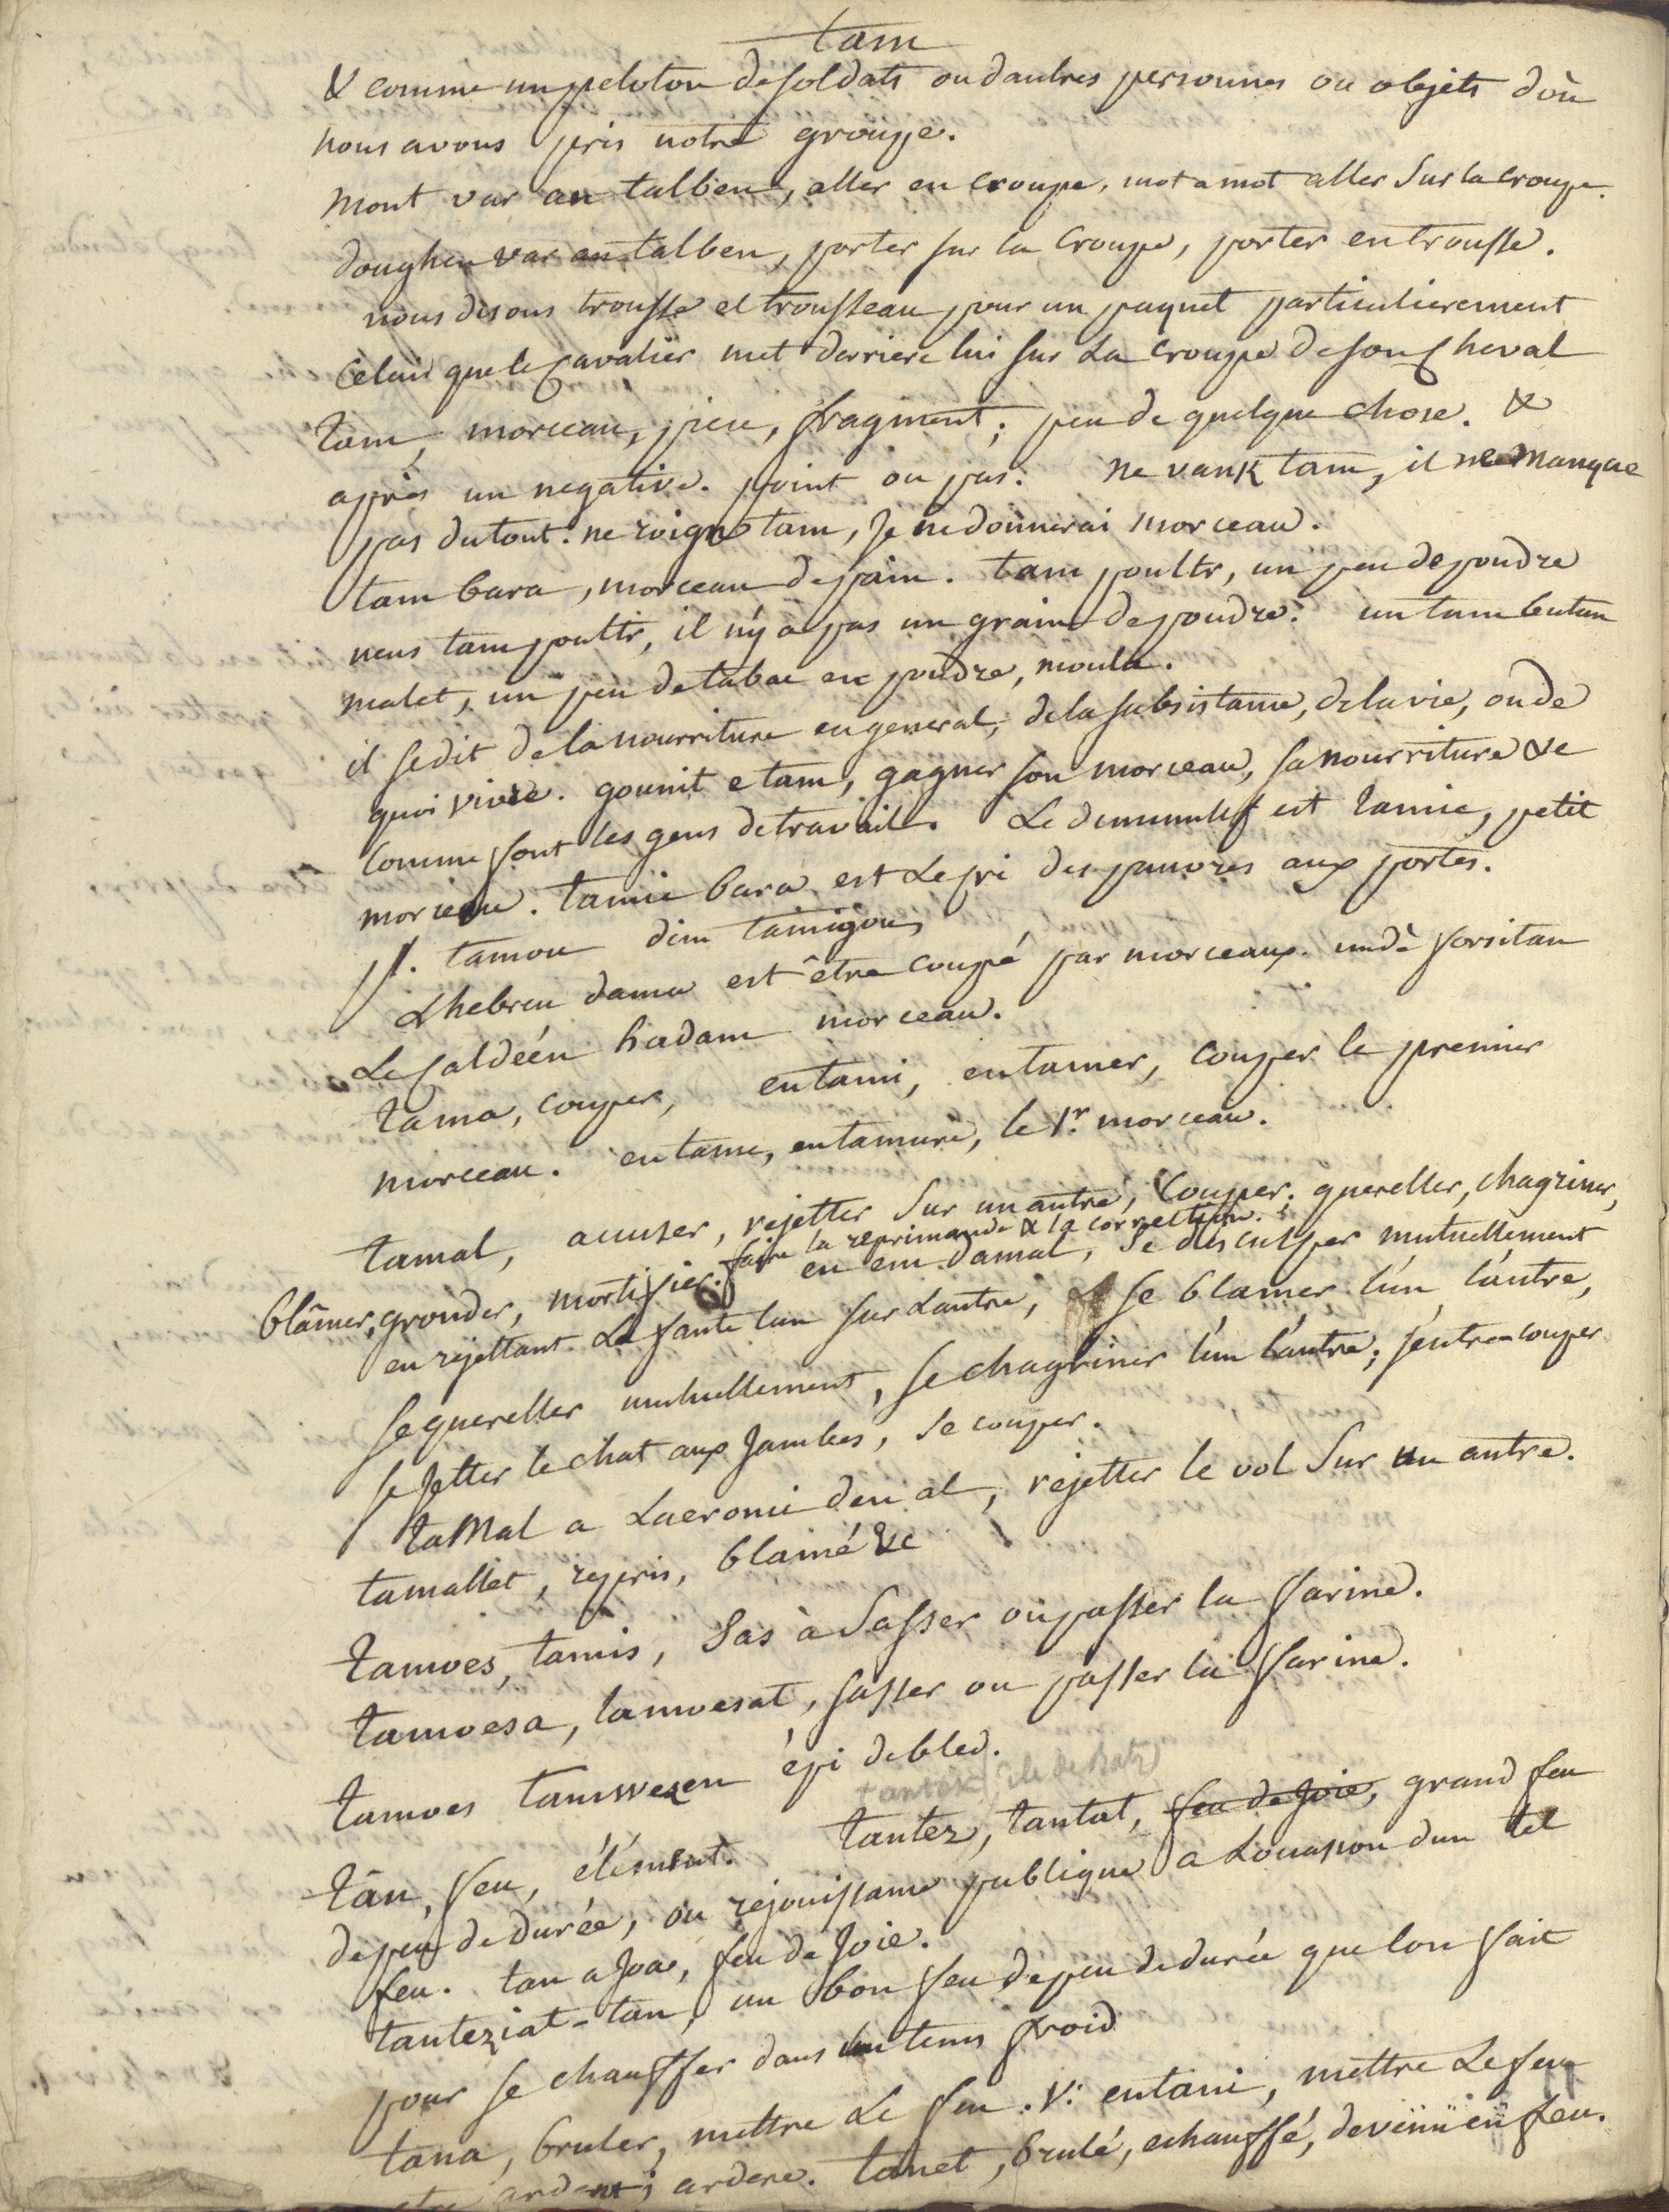 tam
& comme un peloton de soldats ou dautres personnes ou objets d'où
nous avons pris notre grouppe.
mont var an talben, aller en croupe, mot a mot aller sur la croupe.
doughen var an talben, porter sur la croupe, porter en trousse.
nous disons trousse et trousseau pour un paquet particulierement
celui que le cavalier met derriere lui sur la croupe de son cheval
tam, morceau, piece, fragment; peu de quelque chose. &
après un negative. point ou pas. ne vank tam, il ne manque
pas du tout. ne roign tam, je ne donnerai morceau.
tam bara, morceau de pain. tam poultr, un peu de poudre
neus tam poultr, il n'y a pas un grain de poudre. un tam butun
malet, un peu de tabac en poudre, moulu.
il se dit de la nourriture en general, de la subsistance, de la vie, ou de
quoi vivre. gounit e tam, gagner son morceau, sa nourriture &c
comme font les gens de travail. Le diminutif est tamic, petit
morceau. tamic bara est le cri des pauvres aux portes.
pl. tamou dim tamigou,
L'hebreu dama est être coupé par morceaux. undè forsitan
Le caldéen hadam morceau.
tama, couper, entami, entamer, couper le premier
morceau. entame, entamure, le 1r. morceau.
tamal, accuser, rejetter sur un autre, couper. quereller, chagriner,
faire la reprimande & la correction.
blâmer, gronder, mortifier. en em damal, se disculper mutuellement
en rejettant la faute l'un sur l'autre, se blamer l'un l'autre,
se quereller mutuellement, se chagriner l'un l'autre; s'entre-couper
se jetter le chat aux jambes, se couper.
tamal a laeronci d'eun al, rejetter le vol sur un autre.
tamallet, repris, blamé &c
tamoes, tamis, sas à sasser ou passer la farine.
tamoesa, tamoesat, sasser ou passer la farine.
tamoes tamwezen épi de bled.
tantez, ile de Batz
tân, feu, élément. tantez, tantat, feu de joie, grand feu
de peu de durée, ou rejouissance publique a l'occasion d'un tel
feu. tan a joa, feu de joie.
tanteziat-tan, un bon feu de peu de durée que l'on fait
pour se chauffer dans un tems froid
tana, bruler, mettre le feu. V. entani, mettre le feu
être ardent; ardere. tanet, brulé, echauffé, devenu en feu.